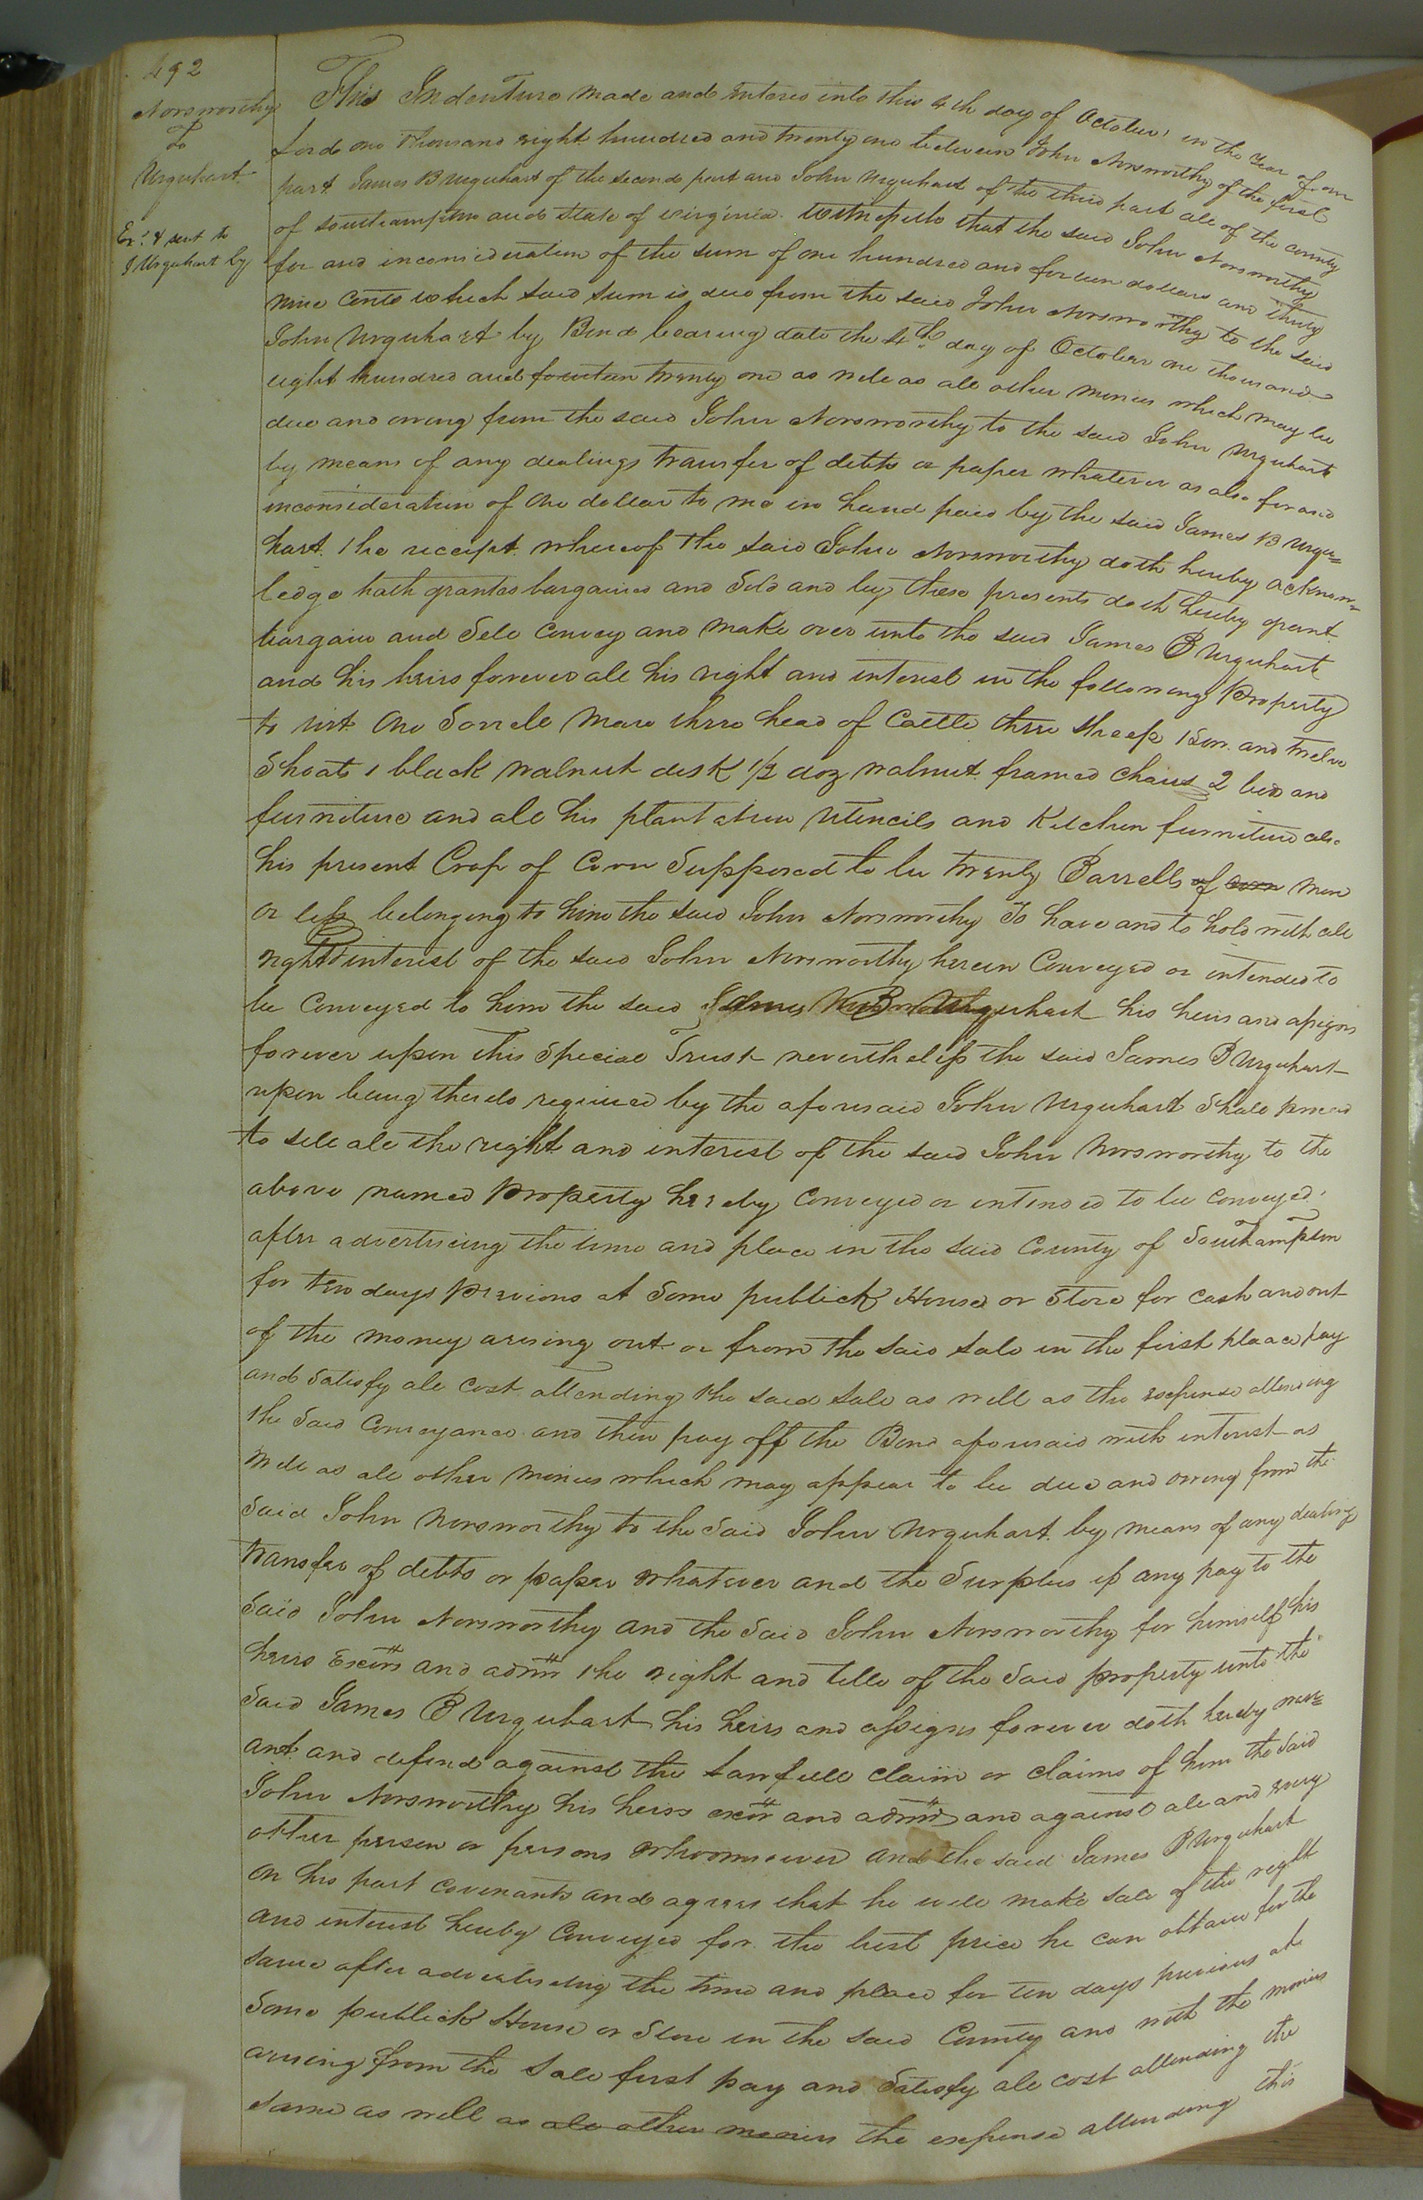 492
Norsworthy
To
Urquhart
Ex.d & sent to
J Urquhart by
This Indenture made and entered into this 4th day of October in the year of our
Lord one thousand eight hundred and twenty one between John Norsworthy of the first
part James B Urquhart of the second part and John Urquhart of the third part all of the county
of Southampton and State of virginia. Witnesseth that the said John Norsworthy
for and inconsideration of the sum of one hundred and forteen dollars and thirty
nine Cents which said sum is due from the said John Norsworthy to the said
John Urquhart by Bond bearing date the 4th day of October one thousand
eight hundred and fourteen twenty one as well as all other monies which may be
due and owing from the said John Norsworthy to the said John Urquhart
by means of any dealings transfer of debts or paper whatever as also for and
inconsideration of One dollar to me in hand paid by the said James B Urqu=
hart the receipt whereof the said John Norsworthy doth hereby acknow=
ledge hath granted bargained and Sold and by these presents doth hereby grant
bargain and Sell Convey and make over unto the said James B Urquhart
and his heirs forever all his right and interest in the following Property
to wit. One Sorrele Mare three head of Cattle three Sheep 1 Sow and twelve
Shoats 1 black walnut desk 1/2 doz walnut framed chairs 2 beds and
furniture and all his plantation Utencils and Kitchen furniture also
his present Crop of Corn Supposed to be twenty Barrells of corn more
or less belonging to him the said John Norsworthy To have and to hold with all
right & interest of the said John Norsworthy herein Conveyed or intended to
be Conveyed to him the said James B Urquhart his heirs and assigns
forever upon this Special Trust nevertheless the said James B Urquhart
upon being thereto required by the aforesaid John Urquhart Shall proceed
to sell all the right and interest of the said John Norsworthy to the
above named Property hereby Conveyed or intended to be Conveyed,
after advertiseing the time and place in the said County of Southampton
for ten days previous at Some publick House or Store for cash and out
of the money arising out or from the said sale in the first plaace pay
and Satisfy all cost attending the said Sale as well as the expense attending
the Said Conveyance and then pay off the Bond aforesaid with interest as
well as all other monies which may appear to be due and owing from the
Said John Norsworthy to the Said John Urquhart by means of any dealings
transfer of debts or paper whatever and the Surplus if any pay to the
Said John Norsworthy and the Said John Norsworthy for himself his
heirs Exors and admrs the right and title of the Said property unto the
Said James B Urquhart his heirs and assigns forever doth hereby warr=
ant and defend against the Lawfull claim or claims of him the Said
John Norsworthy his heirs exors and admrs and against all and every
other person or persons whomsoever and the said James B Urquhart
on his part covenants and agrees that he will make sale of the right
and interest hereby Conveyed for the best price he can obtain for the
same after advertiseing the time and place for ten days previous at
Some publick House or Store in the said County and with the monies
arising from the Sale first pay and Satisfy all cost attending the
same as well as all other monies the expense attending this